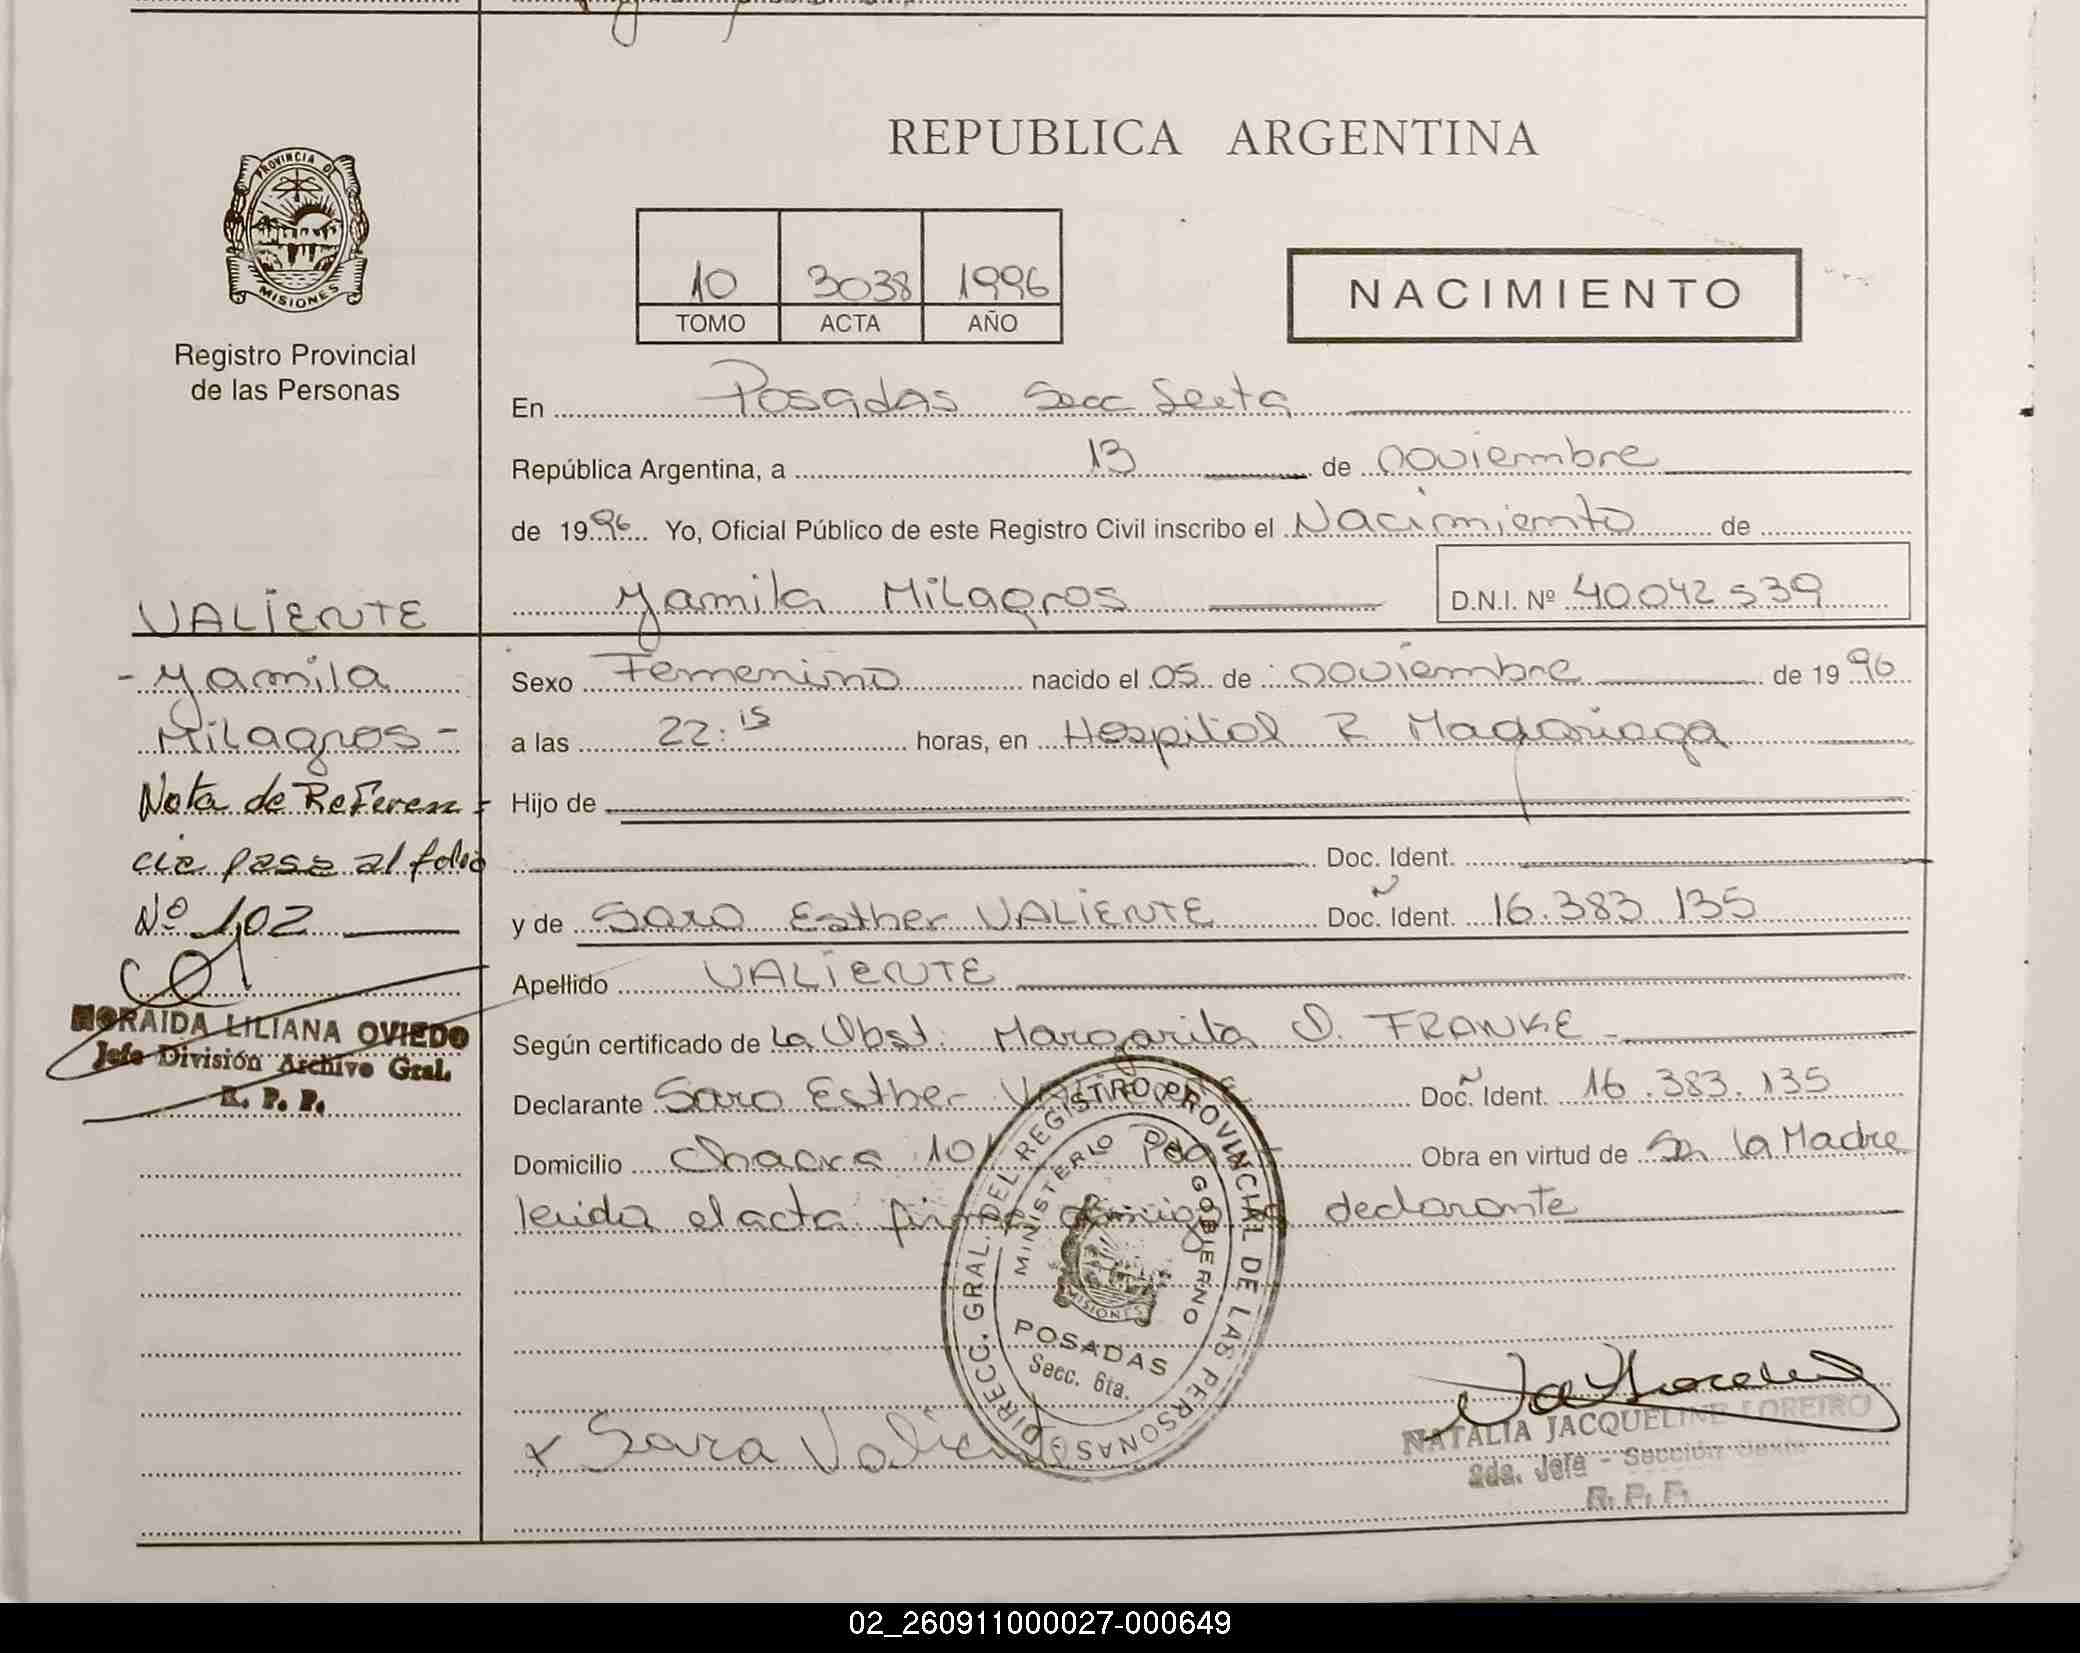 REPUBLICA ARGENTINA
PROVINCIA DE
MISIONES
Registro Provincial
de las Personas
10 3038 1996
TOMO ACTA AÑO
NACIMIENTO
En Posadas Secc Sexta
República Argentina, a 13 de noviembre
de 1996 Yo, Oficial Público de este Registro Civil inscribo el Nacimiento de
Yamila Milagros D.N.I. Nº 40042539
VALIENTE
- Yamila
Milagros -
Nota de Referen=
cia pase al folio
Nº 102
NORAIDA LILIANA OVIEDO
Jefe División Archivo Gral.
R. P. P.
Sexo Femenino nacido el 05 de noviembre de 1996
a las 22:15 horas, en Hospital R Madariaga
Hijo de
Doc. Ident.
y de Sara Esther VALIENTE Doc. Ident. 16.383 135
Apellido VALIENTE
Según certificado de La Obst. Margarita D. FRANKE -
Declarante Sara Esther Doc. Ident. 16.383.135
Domicilio Chacra 10 Obra en virtud de Ser la Madre
leida el acta firma conmigo la declarante
DIRECC. GRAL. DEL REGISTRO PROVINCIAL DE LAS PERSONAS
MINISTERIO DE GOBIERNO
MISIONES
POSADAS
Secc. 6ta.
x Sara Valiente
NATALIA JACQUELINE LOREIRO
2da. Jefa - Sección Sexta
R. P. P.
02_260911000027-000649